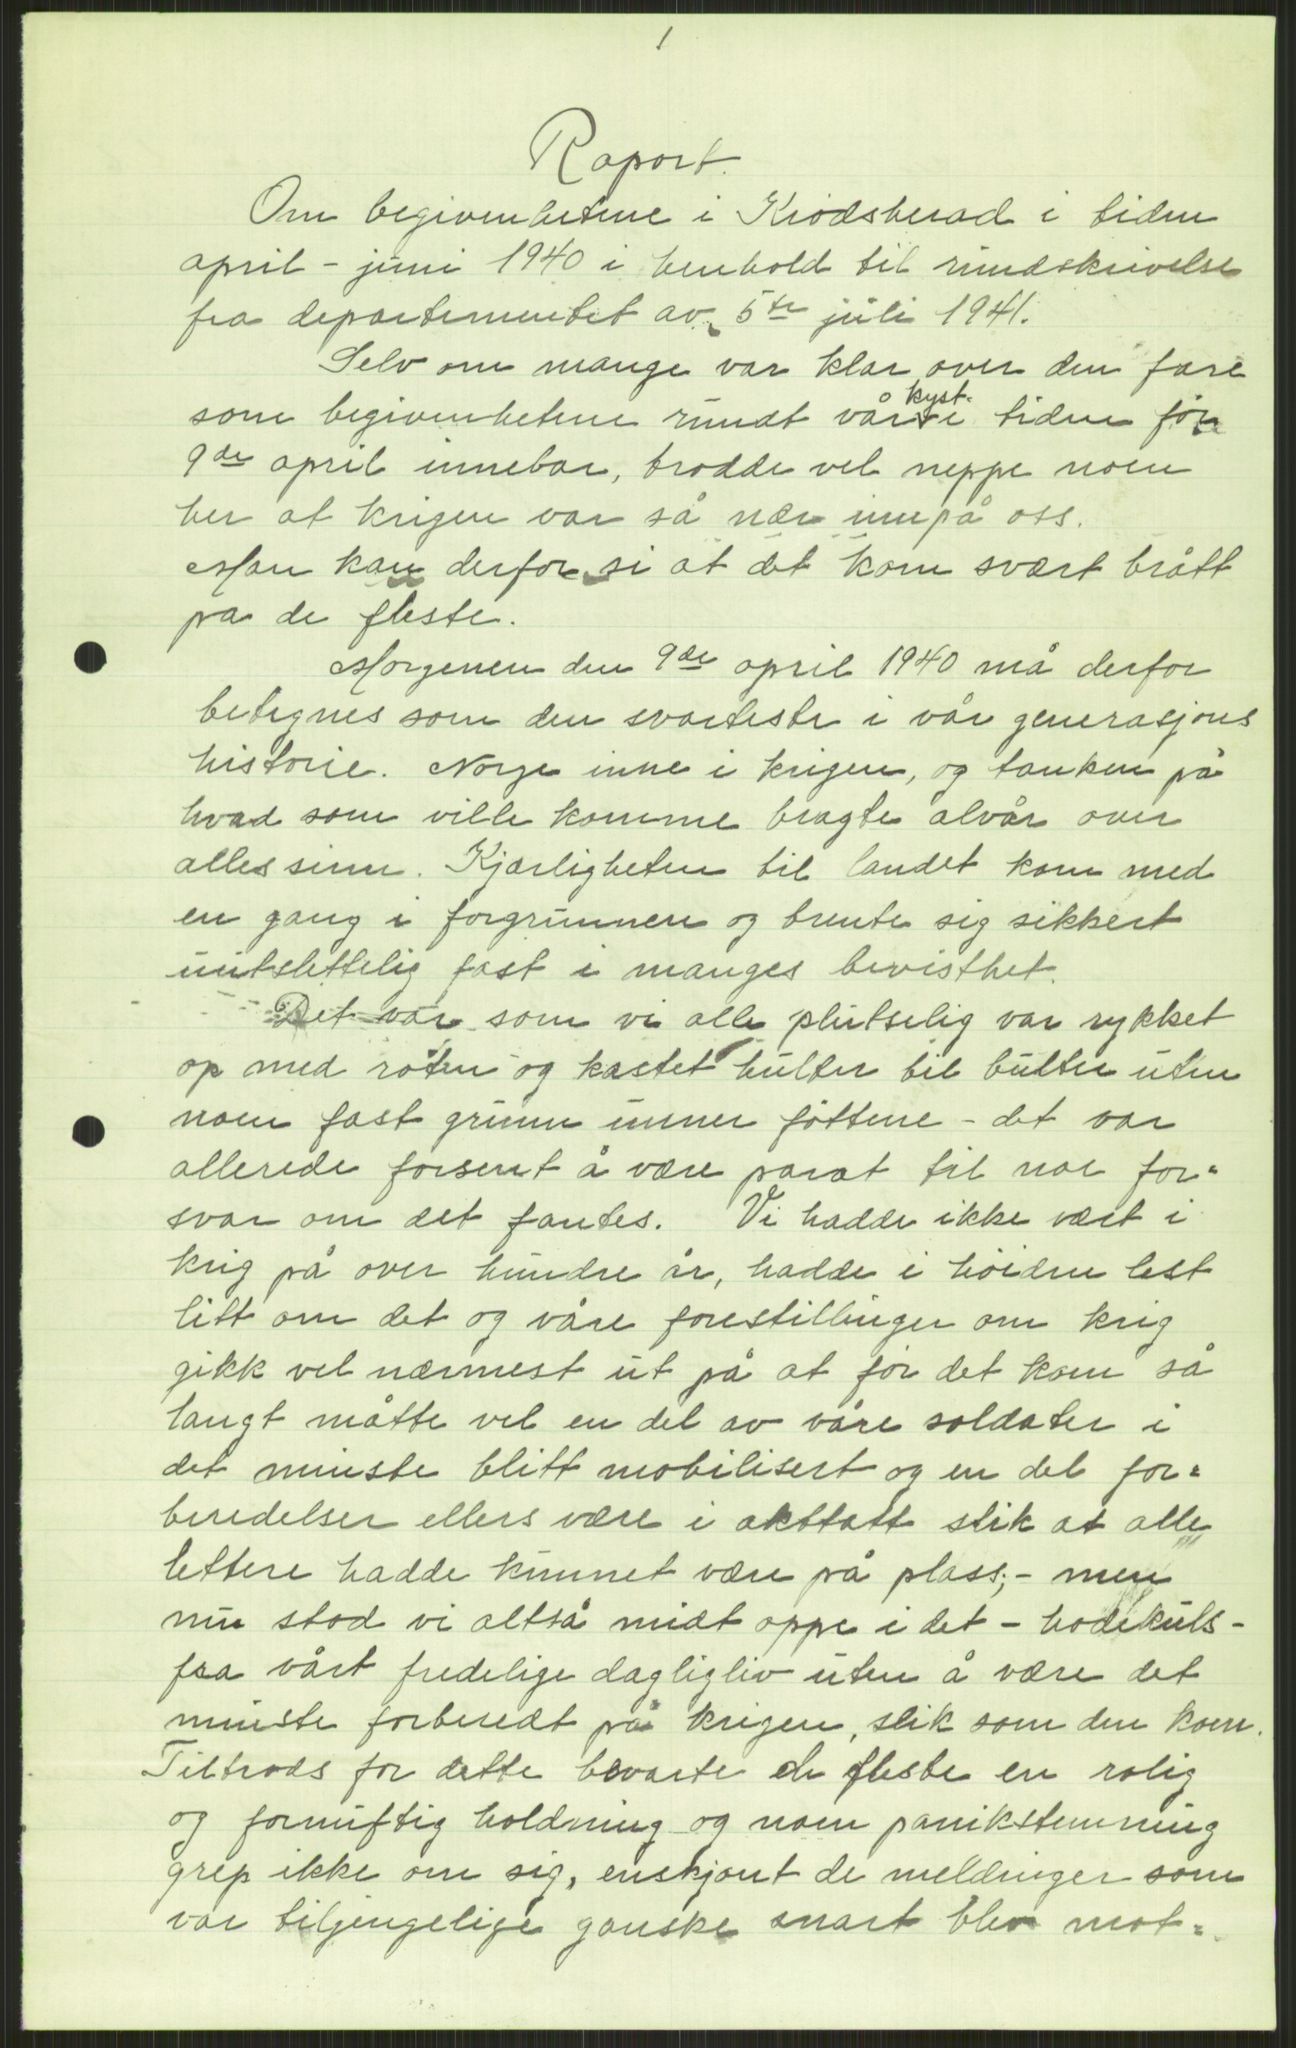 1
Raport.
Om begivenhetene i Krødsherad i tiden
april - juni 1940 i henhold til rundskrivelse
fra departementet av 5te juli 1941.
Selv om mange var klar over den fare
som begivenhetene rundt vår kyst i tiden før
9de april innebar, trodde vel neppe noen
her at krigen var så nær innpå oss.
Man kan derfor si at det kom svært brått
på de fleste.
Morgenen den 9de april 1940 må derfor
betegnes som den svarteste i vår generasjons
historie. Norge inne i krigen, og tanken på
hvad som ville komme bragte alvår over
alles sinn. Kjærligheten til landet kom med
en gang i forgrunnen og brente sig sikkert
uutslettelig fast i manges bevisthet.
Det var som vi alle plutselig var rykket
op med roten og kastet hulter til bulter uten
noen fast grunn unner føttene - det var
allerede forsent å være parat til noe for-
svar om det fantes. Vi hadde ikke vært i
krig på over hundre år, hadde i høiden lest
litt om det og våre forestillinger om krig
gikk vel nærmest ut på at før det kom så
langt måtte vel en del av våre soldater i
det minste blitt mobilisert og en del for-
beredelser ellers være i akttatt slik at alle
lettere hadde kunnet være på plass; - men
nu stod vi altså midt oppe i det - hodekuls -
fra vårt fredelige dagligliv uten å være det
minste forberedt på krigen, slik som den kom.
Tiltrods for dette bevarte de fleste en rolig
og fornuftig holdning og noen panikstemning
grep ikke om sig, enskjønt de meldinger som
var tiljengelige ganske snart blev mot-